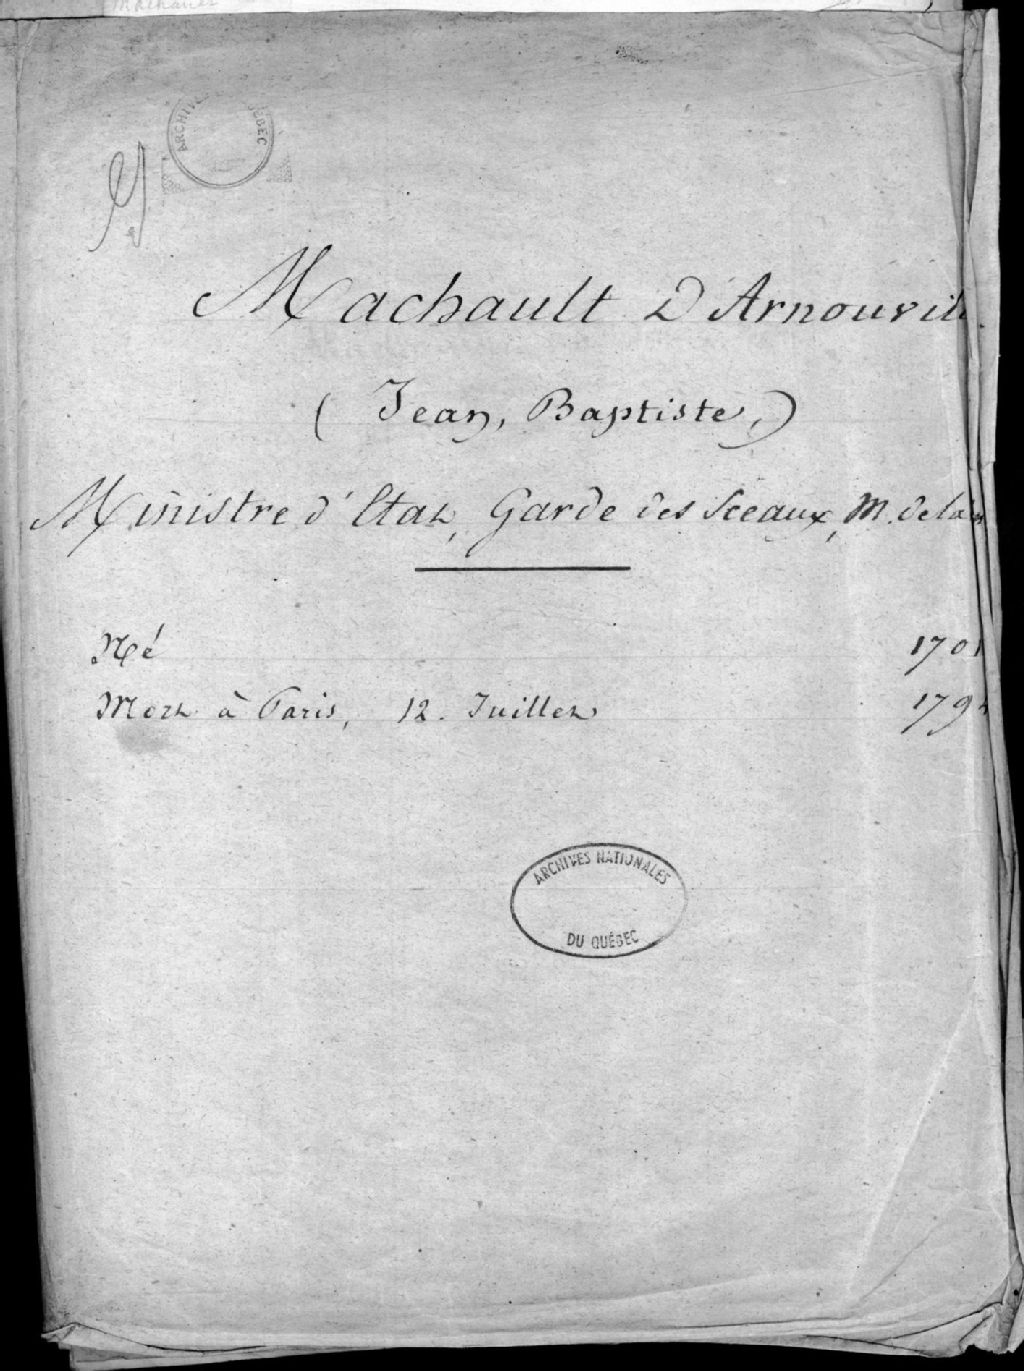 Machault
ARCHIVES QUÉBEC
Machault D'Arnouvill
(Jean, Baptiste,)
Ministre d'Etat, Garde des Sceaux, M. de la
Né 1701
Mort à Paris, 12. Juillet 1794
ARCHIVES NATIONALES
DU QUÉBEC